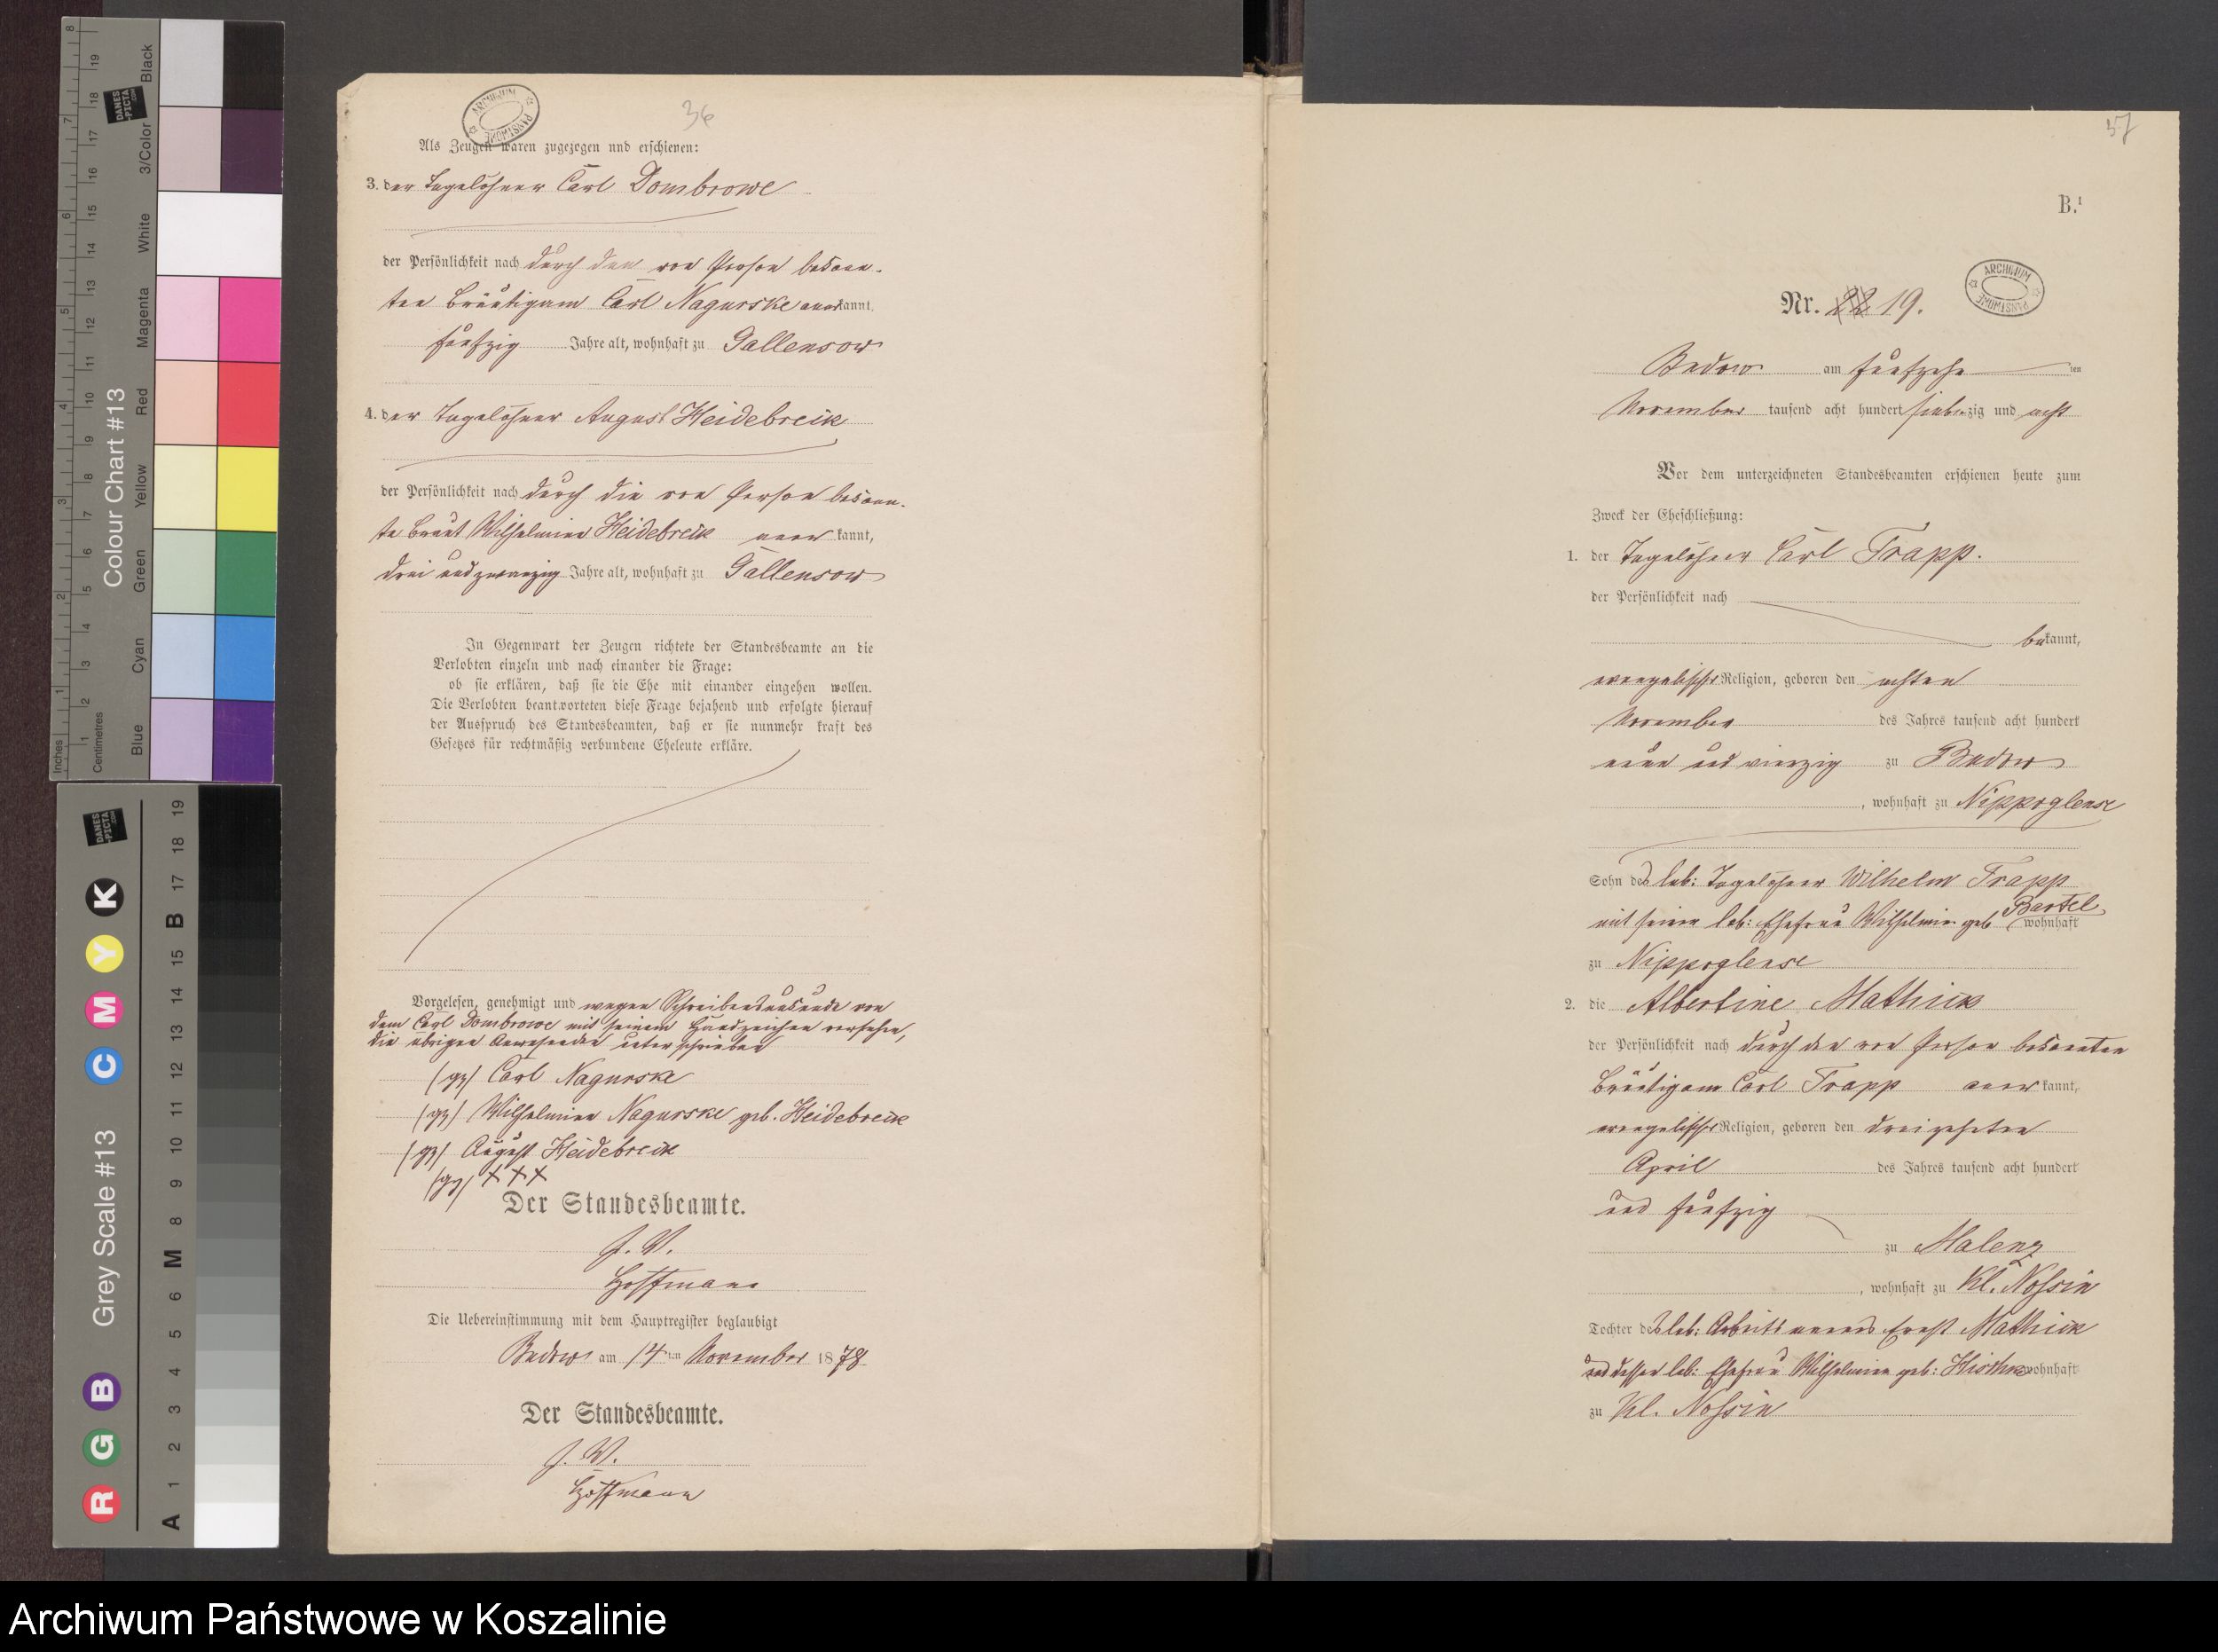 36
Als Zeugen waren zugezogen und erschienen:
3. der Tagelöhner Carl Dombrowe
der Persönlichkeit nach durch den von Person bekann-
ten Bräutigam Carl Nagurske anerkannt,
fünfzig Jahre alt, wohnhaft zu Gallensow
4. der Tagelöhner August Heidebreck
der Persönlichkeit nach durch die von Person bekann-
te Braut Wilhelmine Heidebreck anerkannt,
drei und zwanzig Jahre alt, wohnhaft zu Gallensow
In Gegenwart der Zeugen richtete der Standesbeamte an die
Verlobten einzeln und nach einander die Frage:
ob sie erklären, daß sie die Ehe mit einander eingehen wollen.
Die Verlobten beantworteten diese Frage bejahend und erfolgte hierauf
der Ausspruch des Standesbeamten, daß er sie nunmehr kraft des
Gesetzes für rechtmäßig verbundene Eheleute erkläre.
Vorgelesen, genehmigt und wegen Schreibensunkunde von
dem Carl Dombrowe mit seinem Handzeichen versehen,
die übrigen Anwesenden unterschrieben
(gz) Carl Nagurske
(gz) Wilhelmine Nagurske geb. Heidebreck
(gz) August Heidebreck
(gz) XXX
Der Standesbeamte.
J. V.
Hoffmann
Die Uebereinstimmung mit dem Hauptregister beglaubigt
Budow am 14ten November 1878
Der Standesbeamte.
J. V.
Hoffmann
37
B.¹
Nr. 22 19.
Budow am fünfzehnten
November tausend acht hundert siebenzig und acht
Vor dem unterzeichneten Standesbeamten erschienen heute zum
Zweck der Eheschließung:
1. der Tagelöhner Carl Trapp.
der Persönlichkeit nach
bekannt,
evangelischer Religion, geboren den achten
November des Jahres tausend acht hundert
neun und vierzig zu Budow
, wohnhaft zu Nippoglense
Sohn des leb: Tagelöhner Wilhelm Trapp
mit seiner leb: Ehefrau Wilhelmine geb Bartel wohnhaft
zu Nippoglense
2. die Albertine Mathick
der Persönlichkeit nach durch den von Person bekannten
Bräutigam Carl Trapp anerkannt,
evangelischer Religion, geboren den dreizehnten
April des Jahres tausend acht hundert
und fünfzig
zu Malenz
, wohnhaft zu Kl. Nossin
Tochter des leb: Arbeitsmanns Ernst Mathick
und dessen leb: Ehefrau Wilhelmine geb: wohnhaft
zu Kl. Nossin
ARCHIWUM PAŃSTWOWE
ARCHIWUM PAŃSTWOWE
Colour Chart #13
Blue Cyan Green Yellow Red Magenta White 3/Color Black
Inches
Centimetres
DANES
-PICTA
.COM
Grey Scale #13
R G B C M Y K
A 1 2 3 4 5 6 M 8 9 10 11 12 13 14 15 B 17 18 19
Archiwum Państwowe w Koszalinie